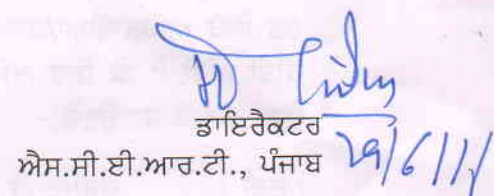 ਡਾਇਰੈਕਟਰ
ਐਸ.ਸੀ.ਈ.ਆਰ.ਟੀ., ਪੰਜਾਬ
29/6/11